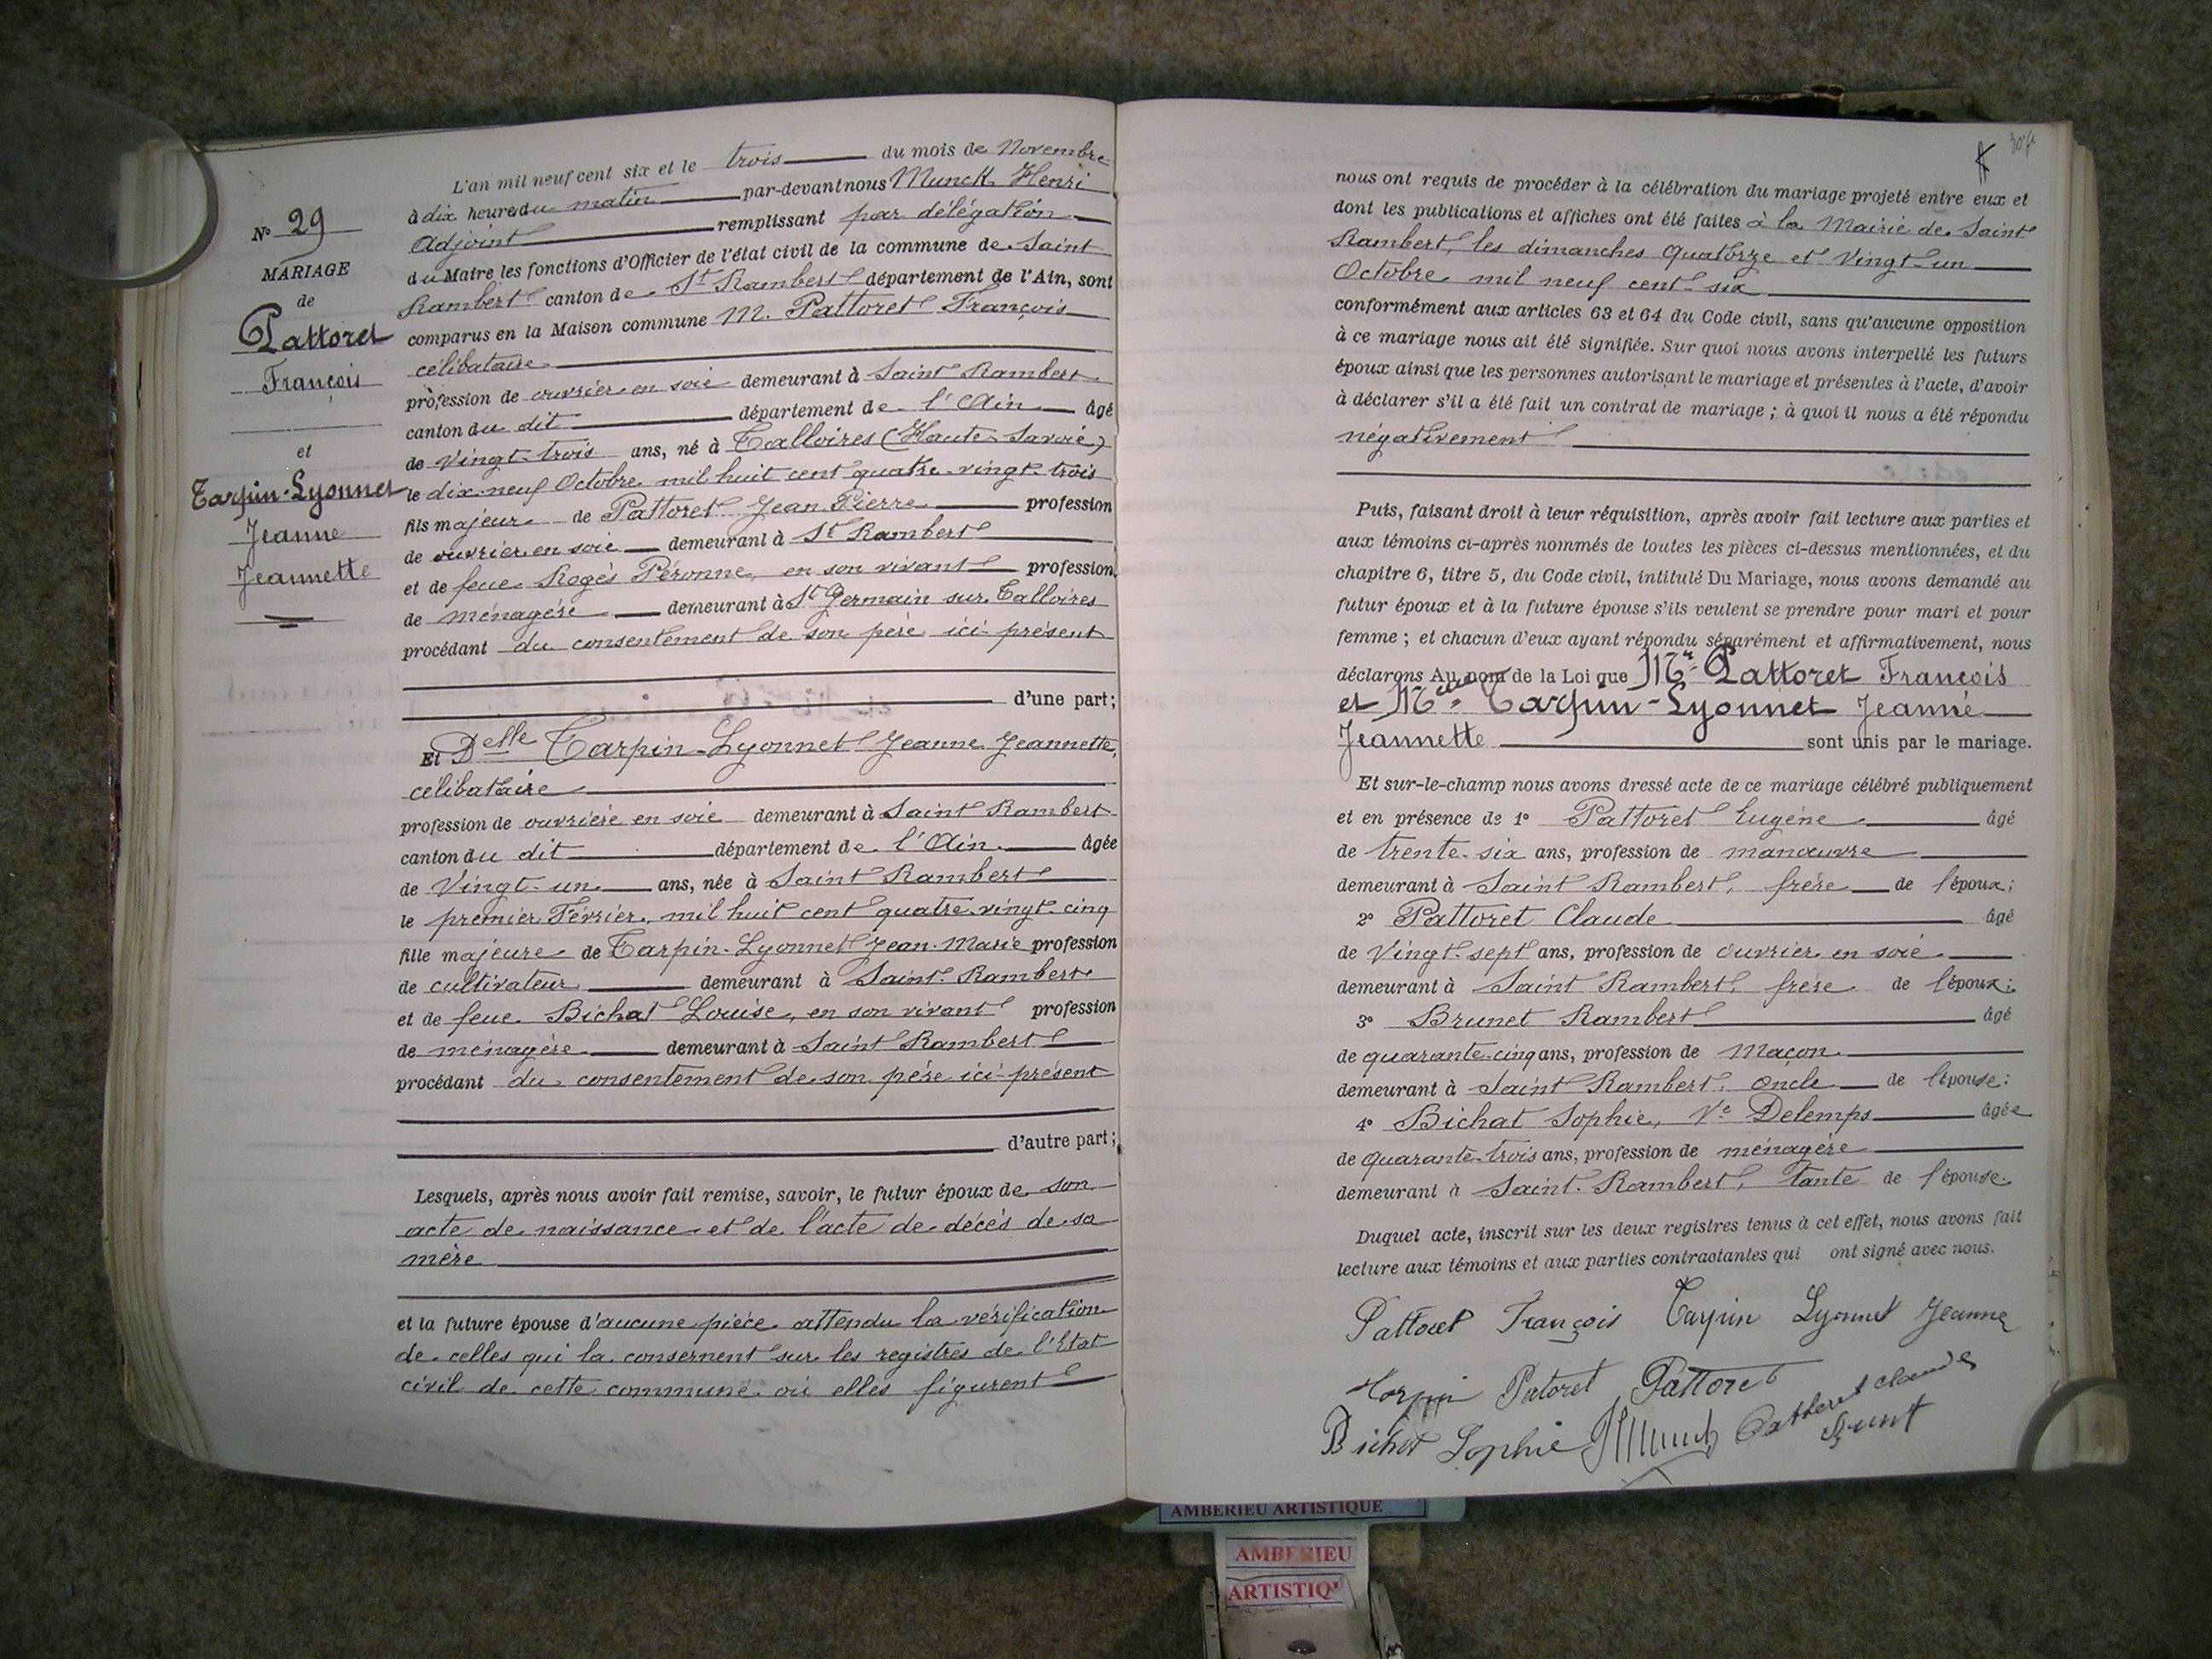 N° 29
MARIAGE
de
Pattoret
François
et
Tarpin-Lyonnet
Jeanne
Jeannette
L'an mil neuf cent six et le trois du mois de Novembre
à dix heures du matin par-devant nous Munck Henri
Adjoint remplissant par délégation
du Maire les fonctions d'Officier de l'état civil de la commune de Saint
Rambert canton de St Rambert département de l'Ain, sont
comparus en la Maison commune M. Pattoret François
célibataire
profession de ouvrier en soie demeurant à Saint Rambert
canton du dit département de l'Ain âgé
de Vingt-trois ans, né à Talloires (Haute-Savoie)
le dix-neuf Octobre mil huit cent quatre-vingt-trois
fils majeur de Pattoret Jean Pierre profession
de ouvrier en soie demeurant à St Rambert
et de feue Rogès Péronne, en son vivant profession
de ménagère demeurant à St Germain sur Talloires
procédant du consentement de son père ici présent
d'une part;
Et Delle Tarpin-Lyonnet Jeanne Jeannette,
célibataire
profession de ouvrière en soie demeurant à Saint Rambert
canton du dit département de l'Ain âgée
de Vingt-un ans, née à Saint Rambert
le premier Février mil huit cent quatre-vingt-cinq
fille majeure de Tarpin-Lyonnet Jean-Marie profession
de cultivateur demeurant à Saint-Rambert
et de feue Bichat Louise, en son vivant profession
de ménagère demeurant à Saint Rambert
procédant du consentement de son père ici présent
d'autre part;
Lesquels, après nous avoir fait remise, savoir, le futur époux de son
acte de naissance et de l'acte de décès de sa
mère
et la future épouse d'aucune pièce attendu la vérification
de celles qui la consernent sur les registres de l'Etat
civil de cette commune où elles figurent
nous ont requis de procéder à la célébration du mariage projeté entre eux et
dont les publications et affiches ont été faites à la Mairie de Saint
Rambert, les dimanches Quatorze et Vingt-un
Octobre mil neuf cent six
conformément aux articles 63 et 64 du Code civil, sans qu'aucune opposition
à ce mariage nous ait été signifiée. Sur quoi nous avons interpellé les futurs
époux ainsi que les personnes autorisant le mariage et présentes à l'acte, d'avoir
à déclarer s'il a été fait un contrat de mariage; à quoi il nous a été répondu
négativement
Puis, faisant droit à leur réquisition, après avoir fait lecture aux parties et
aux témoins ci-après nommés de toutes les pièces ci-dessus mentionnées, et du
chapitre 6, titre 5, du Code civil, intitulé Du Mariage, nous avons demandé au
futur époux et à la future épouse s'ils veulent se prendre pour mari et pour
femme; et chacun d'eux ayant répondu séparément et affirmativement, nous
déclarons Au nom de la Loi que Mr Pattoret François
et Melle Tarpin-Lyonnet Jeanne
Jeannette sont unis par le mariage.
Et sur-le-champ nous avons dressé acte de ce mariage célébré publiquement
et en présence de 1° Pattoret Eugène âgé
de trente-six ans, profession de manœuvre
demeurant à Saint Rambert, frère de l'époux;
2° Pattoret Claude âgé
de Vingt-sept ans, profession de ouvrier en soie
demeurant à Saint Rambert, frère de l'époux;
3° Brunet Rambert âgé
de quarante-cinq ans, profession de Maçon
demeurant à Saint Rambert, oncle de l'épouse;
4° Bichat Sophie, Ve Delemps âgée
de quarante-trois ans, profession de ménagère
demeurant à Saint-Rambert, tante de l'épouse.
Duquel acte, inscrit sur les deux registres tenus à cet effet, nous avons fait
lecture aux témoins et aux parties contractantes qui ont signé avec nous.
Pattoret François Tarpin Lyonnet Jeanne
Patoret Pattoret
Bichat Sophie Claude
AMBERIEU ARTISTIQUE
AMBERIEU
ARTISTIQ